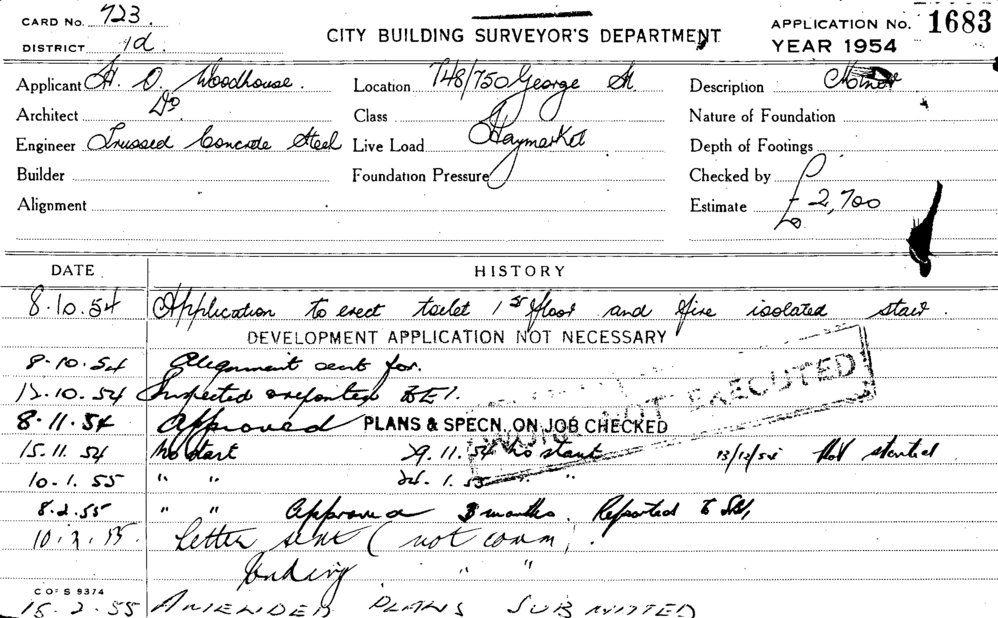 CARD No. 723.
DISTRICT 1d.
CITY BUILDING SURVEYOR'S DEPARTMENT
APPLICATION No. 1683
YEAR 1954
Applicant H. O. Woodhouse.
Location 748/750 George St
Description
Architect Do
Class
Nature of Foundation
Engineer Trussed Concrete Steel
Live Load Haymarket
Depth of Footings
Builder
Foundation Pressure
Checked by
Alignment
Estimate £2,700
DATE HISTORY
8.10.54 Application to erect toilet 1st floor and fire isolated stair.
DEVELOPMENT APPLICATION NOT NECESSARY
8.10.54 Alignment sent for.
12.10.54 Inspected
8.11.54 Approved PLANS & SPECN. ON JOB CHECKED
WORK NOT EXECUTED
15.11.54 No start 29.11.54 No start 13/12/54 Not started
10.1.55 " " 24.1.55 "
8.2.55 " " Approved 3 months. Reported to
10.2.55. Letter sent (not comm
" "
C OF S 9374
15.2.55 AMENDED PLANS SUBMITTED